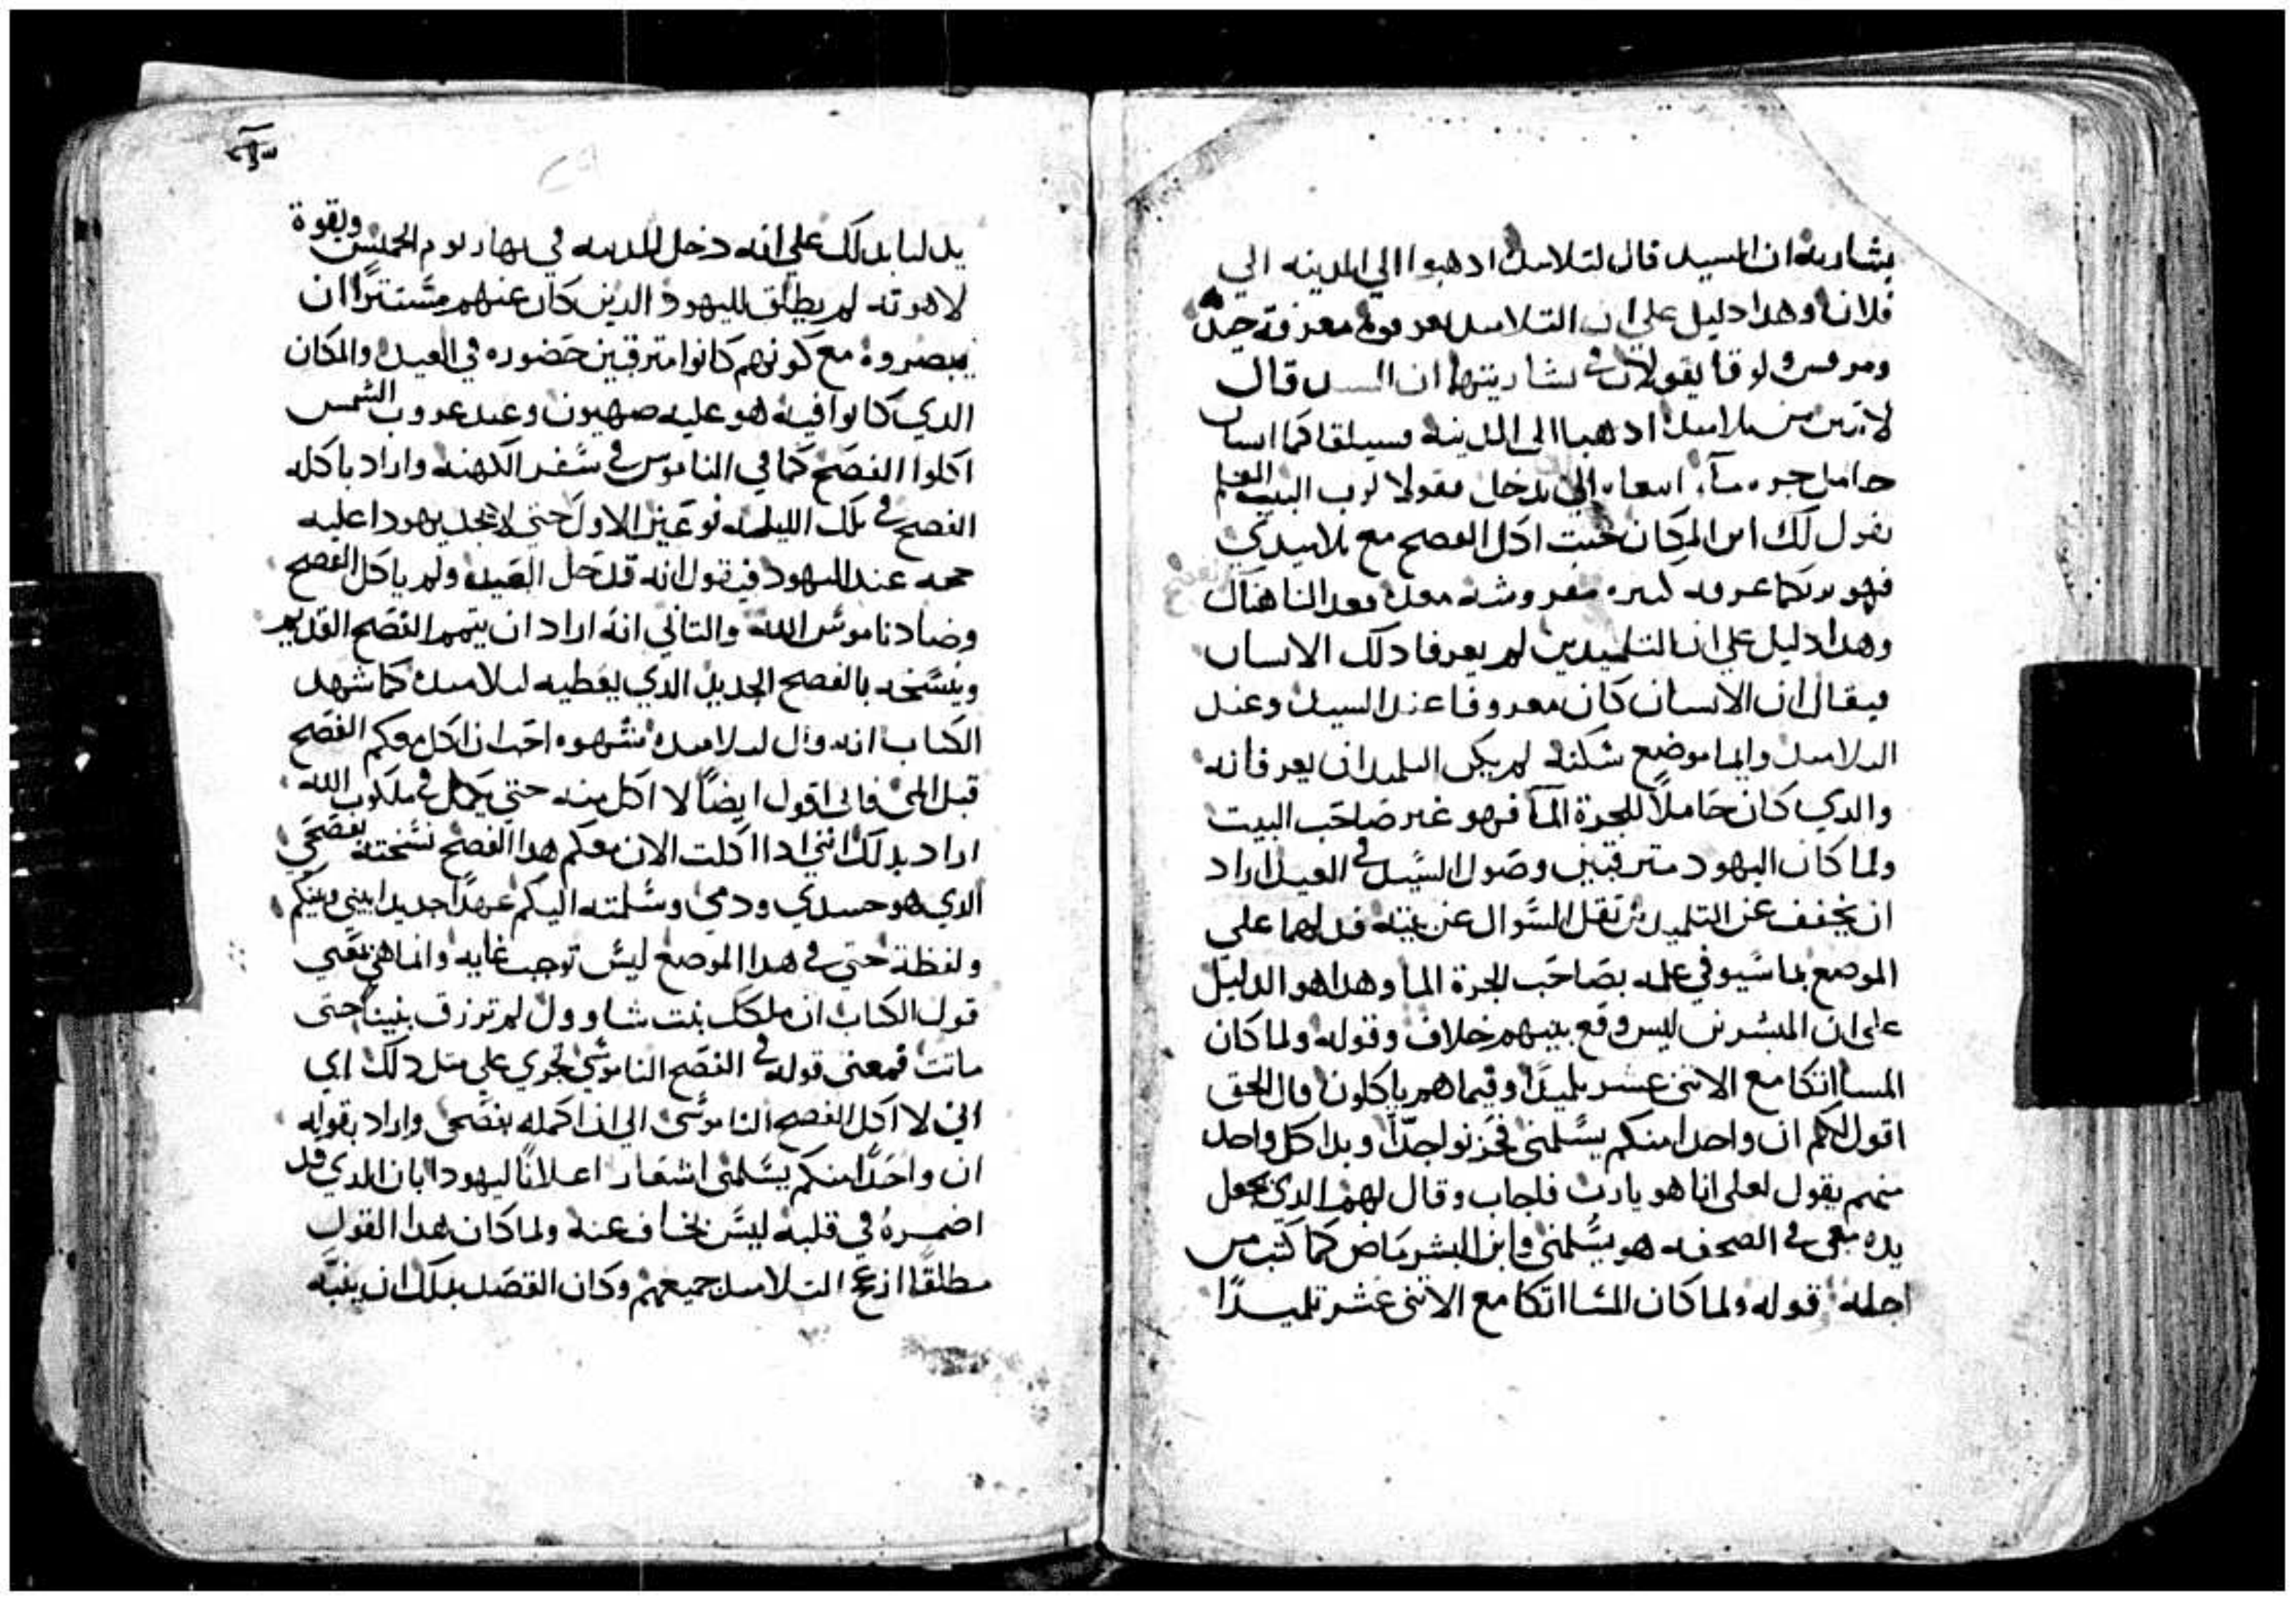 بشارته ان السيد قال لتلاميده ادهبوا الي المدينه الي
فلان وهدا دليل علي ان التلاميد يعرفونه معرفة جيده
ومرقس ولوقا يقولان في بشارتيهما ان السيد قال
لاتنين من تلاميده ادهبا الي المدينه فسيلقاكما انسان
حامل جره مآء اتبعاه الي يدخل فقولا لرب البيت المعلم
يقول لك اين المكان حيت اكل الفصح مع تلاميدي
فهو يريكما غرفه كبيره مفروشه معده فعدا لنا هناك
وهدا دليل علي ان التلميدين لم يعرفا دلك الانسان
فيقال ان الانسان كان معروفا عند السيد وعند
التلاميد وانما موضع سكنه لم يكن التلميدان يعرفانه
والدي كان حاملاً للجرة المآ فهو غير صاحب البيت
ولما كان اليهود مترقبين وصول السيد في العيد اراد
ان يخفف عن التلميدين تقل السوال عن بيته فدلهما علي
الموضع بما سيوفي علمه بصاحب الجرة الما وهدا هو الدليل
علي ان المبشرين ليس وقع بينهم خلاف وقوله ولما كان
المسا اتكا مع الاتني عشر تلميدًا وفيما هم ياكلون قال الحق
اقول لكم ان واحدا منكم يسلمني فحزنوا جدًا وبدا كل واحد
منهم يقول لعلي انا هو يارب فاجاب وقال لهم الدي يجعل
يده معي في الصحفه هو يسلمني وابن البشر ماض كما كتب من
اجله قوله ولما كان المسا اتكا مع الاتني عشر تلميدًا
يدلنا بدلك علي انه دخل المدينه في نهار يوم الخميس وبقوة
لاهوته لم يطلق لليهود الدين كان عنهم مستترًا ان
يبصروه مع كونهم كانوا مترقبين حضوره في العيد والمكان
الدي كانوا فيه هو عليه صهيون وعند غروب الشمس
اكلوا الفصح كما في الناموس في سفر الكهنه واراد باكله
الفصح في تلك الليله نوعين الاول حتي لا يجد يهودا عليه
حجه عند اليهود فيقول انه قد حل العيد ولم ياكل الفصح
وضاد ناموس الله والتاني انه اراد ان يتمم الفصح القديم
وينسخه بالفصح الجديد الدي يعطيه لتلاميده كما شهد
الكتاب انه قال لتلاميده شهوه احب ان اكل معكم الفصح
قبل المي فاني اقول ايضًا لا اكل منه حتي يكمل في ملكوت الله
اراد بدلك انني ادا اكلت الان معكم هدا الفصح نسخته بفصحي
الدي هو جسدي ودمي وسلمته اليكم عهدًا جديدا بيني وبينكم
ولفظة حتي في هدا الموضع ليس توجب غايه وانما هي معني
قول الكتاب ان ملكل بنت شاوول لم ترزق بنينًا حتي
ماتت فمعني قوله في الفصح الناموسي تجري علي متل دلك اي
اني لا اكل الفصح الناموسي الي اذا كمله بفصحي واراد بقوله
ان واحدًا منكم يسلمني اشعار اعلانًا ليهودا بان الدي قد
اضمره في قلبه ليس بخاف عنه ولما كان هدا القول
مطلقًا ازعج التلاميد جميعهم وكان القصد بدلك ان ينبه